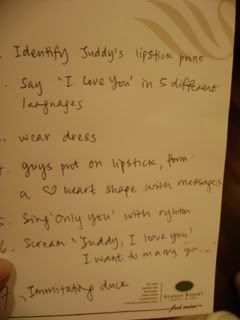 Identify Juddy's lipstick print
Say 'I Love You' in 5 different
languages
wear dress
guys put on lipstick, form
a ♡ heart shape with messages
5. Sing 'Only you' with
6. Scream "Juddy, I love you!
I want to marry you..."
7, Immitating duck
SUMMIT RESORT
feel more